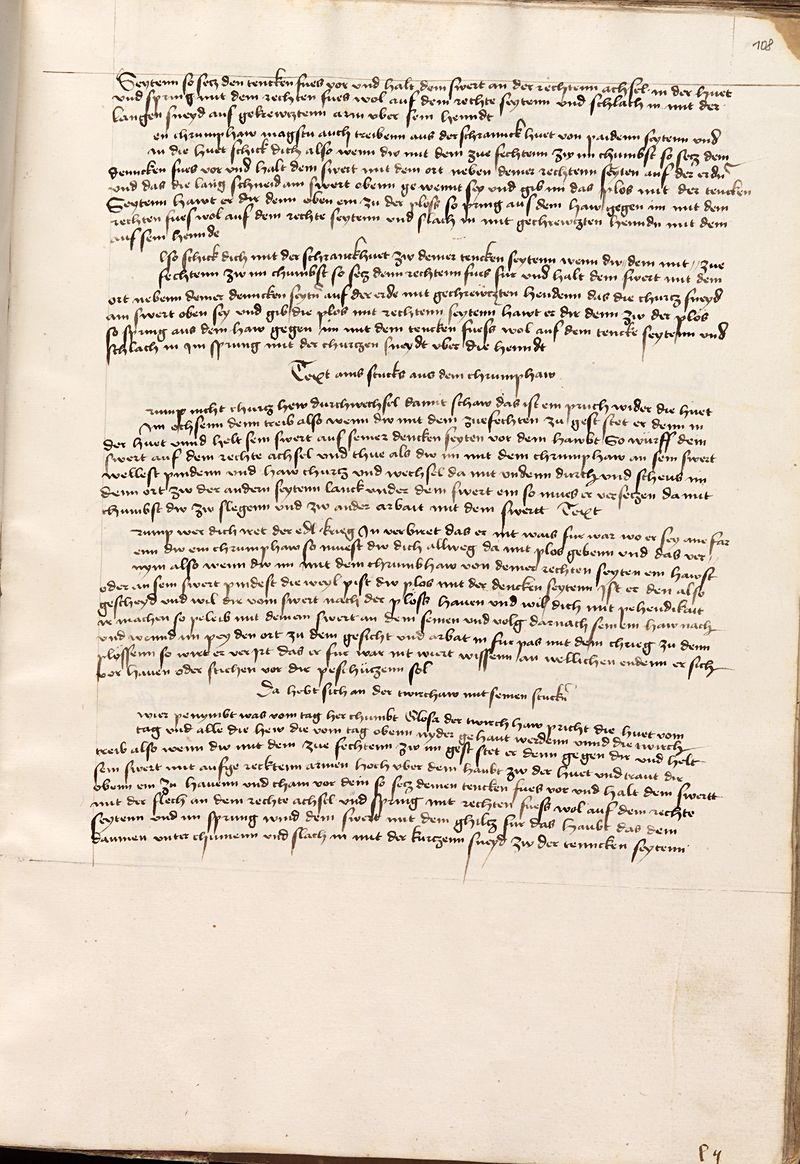 108
Seytenn so secz den tencken fues vor und halt dein swert an der rechtenn achsel in der huet
und spring mit dem rechten fues wol auf dein rechte seyten und schlach in mit der
langen sneyd aus gekrewtztenn arm uber sein henndt
en chrumphaw magstu auch treibenn aus der schranckhuet von paidenn seyten und
in die huet schick dich also wenn dw mit dem zue fechtenn zw im chumbst so secz dein
dencken fues vor und halt dein swert mit dem ort neben deiner rechtenn seyten auf der erdn
und das die lang schneid am swert obenn gewennt sey und gib im das plos mit der tencken
Seytenn hawt er dir denn oben ein zu der ploss so spring aus dem haw gegen im mit dem
rechten fues wol auf dein rechte seytenn und slach in mit gechrewtzten henndn mit dem
auf sein hennde
lso schick dich mit der schranckhuet zw deiner tencken seytenn wenn dw dem mit zue
fechtenn zw im chumbst so secz denn rechtenn fues fur und halt dein swert mit dem
ort nebenn deiner denncken seytn auf der erde mit gechrewtzten hendenn das die churcz sneyd
am swert oben sey und gib die plos mit rechtenn seytenn hawt er dir denn zw der plos
so spring aus dem haw gegen im mit dem tencken fuess wol auf dein tencke seytenn und
schlach in im sprung mit der churczen sneydt uber die henndt
Text ains stucks aus dem chrumphaw
rump nicht churcz hew durchwechsel damit schaw das ist ein pruch wider die huet
Im ochsenn denn treib also wenn dw mit dem zuefechten zu gest stet er denn in
der huet unnd helt sein swert auf seiner dencken seyten vor dem hawbt So wurff dein
swert auf dein rechte achsel und thue als dw im mit dem chrumphaw an sein swert
wellest pindenn und haw churcz und wechsel da mit undenn durch und scheus im
denn ort zw der andern seytenn lanck under dem swert ein so mues er verseczen da mit
chumbst dw zw slegenn und zw ander arbait mit dem swertt Text
rump wer dich irret der edl krieg In verbiret das er nit wais fur war wo er sey ane far
enn dw ein chrumphaw so muest dw dich allweg da mit plos gebenn und das ver
nym also wenn dw im mit dem chrumbhaw von deiner rechten seyten ein hawst
oder an sein swert pindest die weyl pist dw plos mit der dencken seytenn Ist er den also
gescheyd und wil dir vom swert nach der ploss hauen und wil dich mit pehendikait
ir machen so peleib mit deinem swert an dem seinen und volg darnach seinem haw nach
und wennd im pey den ort zu dem gesicht und arbat in fur pas mit dem chrieg zu denn
plossenn so wirt er verirt das er fur war nit wirt wissenn an wellichen endenn er sich
vor hauen oder stichen vor dir peschuczenn sol
Da hebt sich an der twirchaw mit seinen stuckn
wier penymbt was vom tag her chumbt Glosa der twirch haw pricht die huet vom
tag und alle die hew die vom tag obenn nyder gehaut werdenn unnd die twirch
treib also wenn dw mit dem zue fechtenn zw im gest stet er denn gegen dir und helt
sein swert mit aufge recktenn armen hoch uber dem haubt zw der huet und traut dir
obenn ein zu hauenn und cham vor dein so secz deinen tencken fues vor und halt dein swertt
mit der flech an dein rechte achsel und spring mit rechten fuess wol auf dein rechte
seytenn und im sprung wind dein swert mit dem ghilcz fur das haubt das dein
daumen unter chumenn und slach in mit der kurczenn sneyd zw der tenncken seytenn